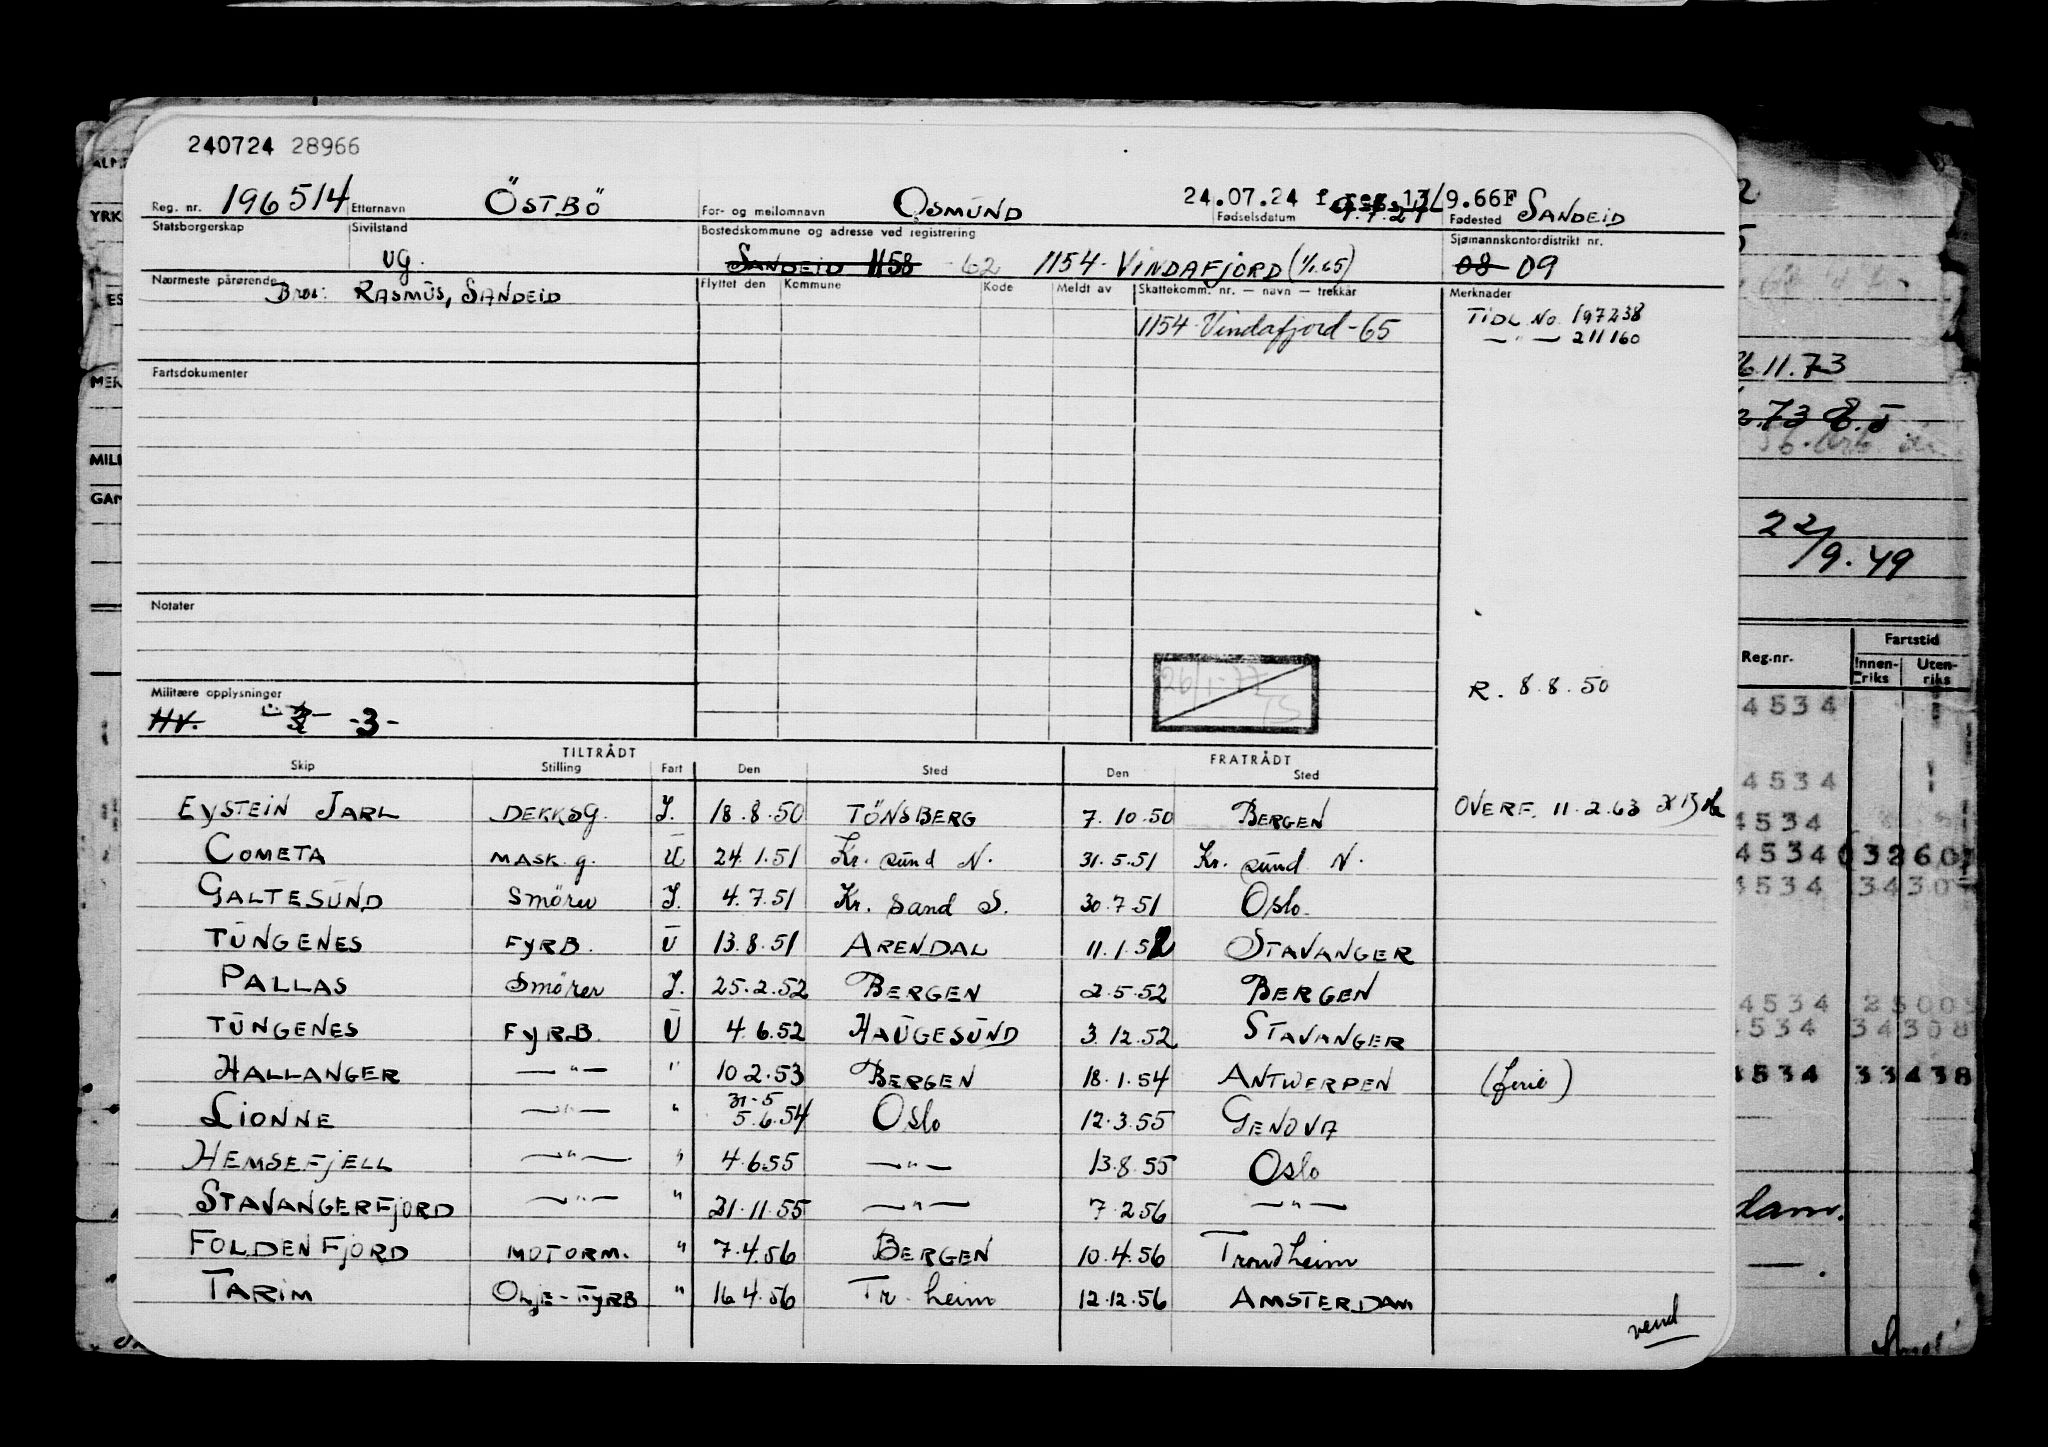 240724 28966
Reg. nr. 196514 Etternavn ÖSTBÖ For- og mellomnavn OSMUND 24.07.24 Fødselsdatum 9.66F Fødested SANDEID
Statsborgerskap Sivilstand ug. Bostedskommune og adresse ved registrering SANDEID 1158 -62 1154 - VINDAFJORD (1/1.65) Sjømannskontordistrikt nr. 08 09
Nærmeste pårørende Bror: RASMUS, SANDEID Flyttet den Kommune Kode Meldt av Skattekomm. nr. — navn — trekkår Merknader
1154 Vindafjord - 65
TIDL. No. 197238
— " — 211160
Fartsdokumenter
Notater
26/1-77
R. 8.8.50
Militære opplysninger
HV. -3-
TILTRÅDT FRATRÅDT
Skip Stilling Fart Den Sted Den Sted
EYSTEIN JARL DEKKSG. I. 18.8.50 TÖNSBERG 7.10.50 BERGEN OVERF. 11.2.63
COMETA MASK.g. U 24.1.51 Kr. sund N. 31.5.51 Kr. sund N.
GALTESUND Smörer I. 4.7.51 Kr. sand S. 30.7.51 Oslo.
TUNGENES FYRB. U 13.8.51 ARENDAL 11.1.52 STAVANGER
PALLAS Smörer I. 25.2.52 BERGEN 2.5.52 BERGEN
TUNGENES FYRB. U 4.6.52 HAUGESUND 3.12.52 STAVANGER
HALLANGER — " — " 10.2.53 BERGEN 18.1.54 ANTWERPEN (ferie)
LIONNE — " — " 31-5 5.6.54 Oslo 12.3.55 GENOVA
HEMSEFJELL — " — " 4.6.55 — " — 13.8.55 Oslo
STAVANGERFJORD — " — " 21.11.55 — " — 7.2.56 — " —
FOLDENFJORD MOTORM. " 7.4.56 BERGEN 10.4.56 Trondheim
TARIM Olje-FYRB " 16.4.56 Tr. heim 12.12.56 AMSTERDAM
vend
YRK
MER
MILI
GAN
6.11.73
73
22/9.49
Reg.nr. Fartstid
Innenriks Utenriks
4534
4534
4534
4534 03260
4534 3430
4534 2300
4534 34308
4534 33438
dam.